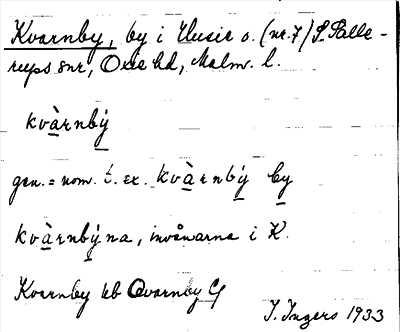 Kvarnby, by i Husie o. (nr. 7) S. Salle-
rups snr, Oxie hd, Malm. l.
kvàrnbý
gen. = nom. t. ex. kvàrnbý by
kvàrnbýna, invånarna i K.
Kvarnby kb Qvarnby
I. Ingers 1933